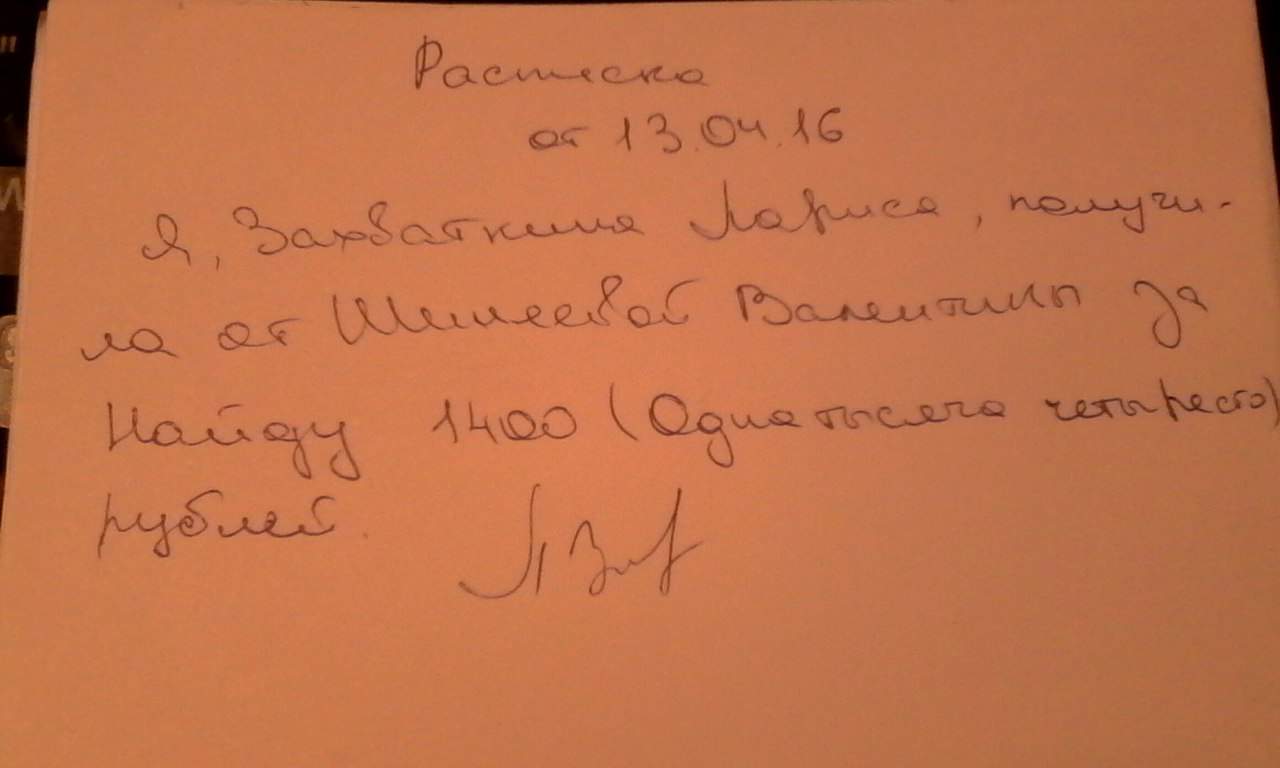 Расписка
от 13.04.16
Я, Захваткина Лариса, получи-
ла от Шинеевой Валентины за
Найду 1400 (Одна тысяча четыресто)
рублей.